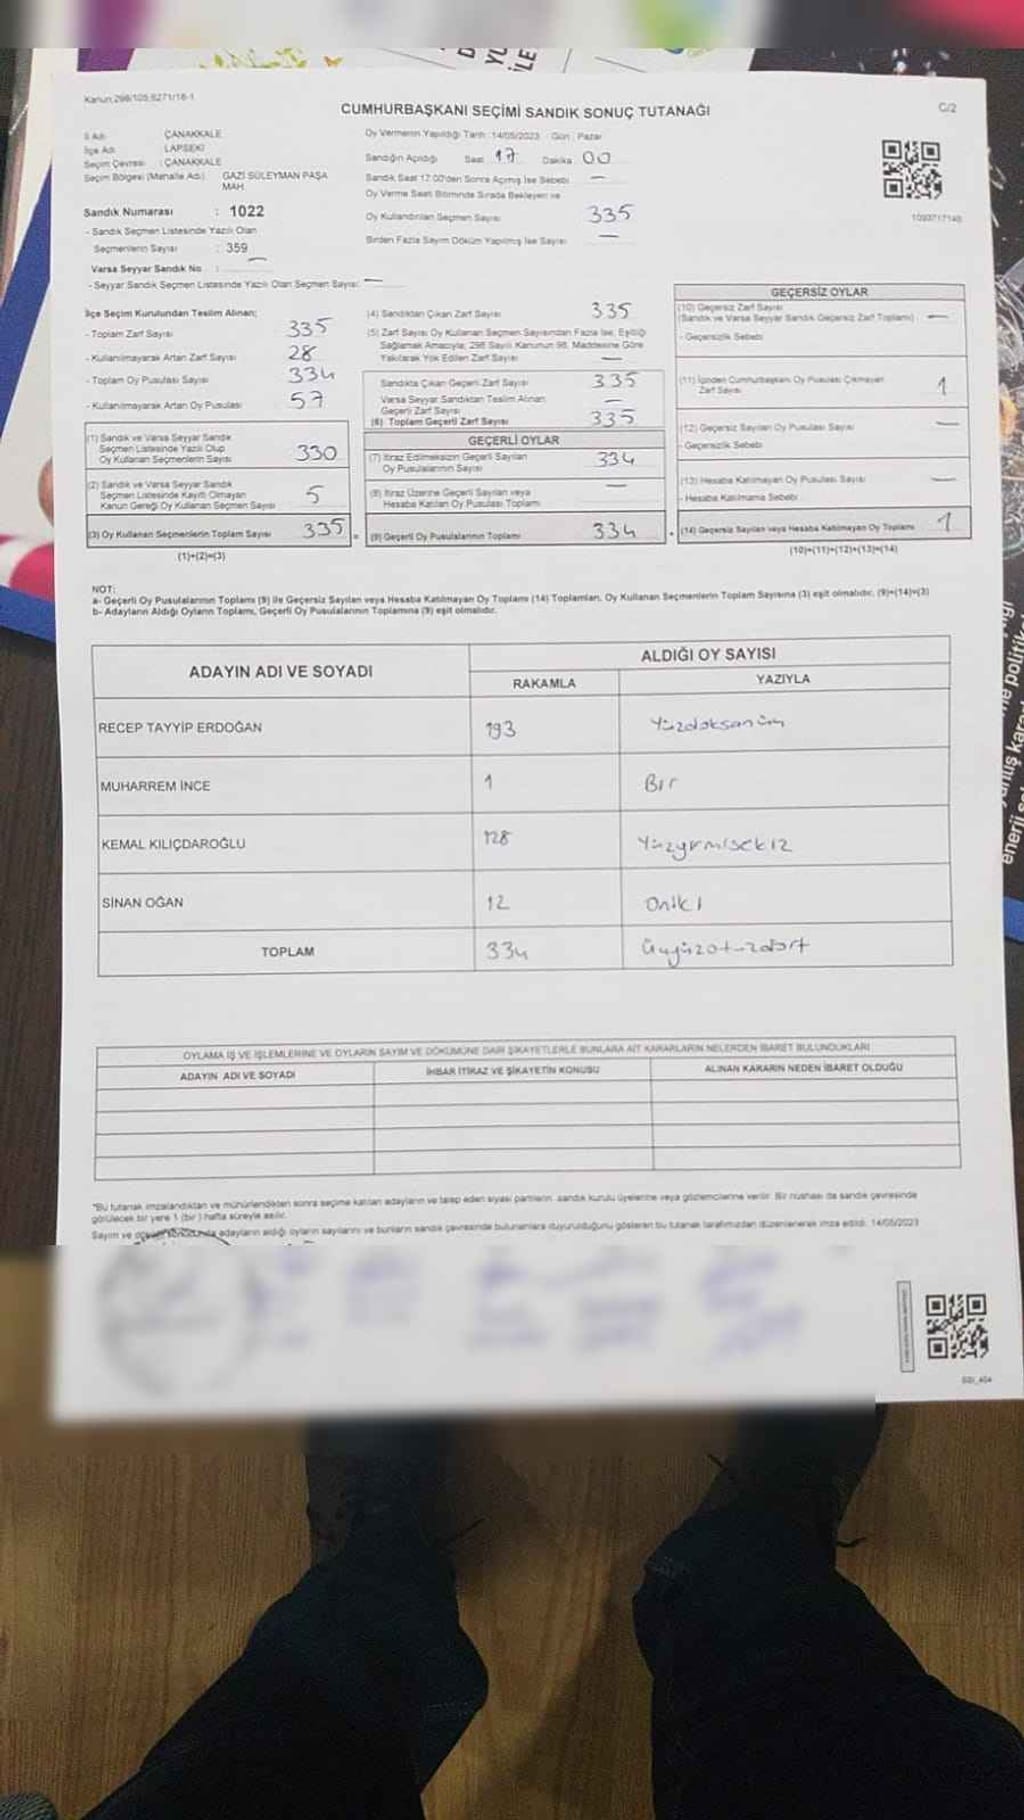 Kanun:298/105;6271/16-1
CUMHURBAŞKANI SEÇİMİ SANDIK SONUÇ TUTANAĞI
C/2
İl Adı : ÇANAKKALE
İlçe Adı : LAPSEKİ
Seçim Çevresi : ÇANAKKALE
Seçim Bölgesi (Mahalle Adı) : GAZİ SÜLEYMAN PAŞA MAH.
Sandık Numarası : 1022
- Sandık Seçmen Listesinde Yazılı Olan
Seçmenlerin Sayısı : 359
Varsa Seyyar Sandık No : —
- Seyyar Sandık Seçmen Listesinde Yazılı Olan Seçmen Sayısı: —
Oy Vermenin Yapıldığı Tarih :14/05/2023 Gün : Pazar
Sandığın Açıldığı Saat 17 Dakika 00
Sandık Saat 17:00'den Sonra Açılmış İse Sebebi —
Oy Verme Saati Bitiminde Sırada Bekleyen ve
Oy Kullandırılan Seçmen Sayısı 335
Birden Fazla Sayım Döküm Yapılmış İse Sayısı —
İlçe Seçim Kurulundan Teslim Alınan;
- Toplam Zarf Sayısı 335
- Kullanılmayarak Artan Zarf Sayısı 28
- Toplam Oy Pusulası Sayısı 334
- Kullanılmayarak Artan Oy Pusulası 57
(1) Sandık ve Varsa Seyyar Sandık
Seçmen Listesinde Yazılı Olup
Oy Kullanan Seçmenlerin Sayısı 330
(2) Sandık ve Varsa Seyyar Sandık
Seçmen Listesinde Kayıtlı Olmayan
Kanun Gereği Oy Kullanan Seçmen Sayısı 5
(3) Oy Kullanan Seçmenlerin Toplam Sayısı 335
(1)+(2)=(3)
(4) Sandıktan Çıkan Zarf Sayısı 335
(5) Zarf Sayısı Oy Kullanan Seçmen Sayısından Fazla İse, Eşitliği
Sağlamak Amacıyla; 298 Sayılı Kanunun 98. Maddesine Göre
Yakılarak Yok Edilen Zarf Sayısı —
Sandıkta Çıkan Geçerli Zarf Sayısı 335
Varsa Seyyar Sandıktan Teslim Alınan
Geçerli Zarf Sayısı —
(6) Toplam Geçerli Zarf Sayısı 335
GEÇERLİ OYLAR
(7) İtiraz Edilmeksizin Geçerli Sayılan
Oy Pusulalarının Sayısı 334
(8) İtiraz Üzerine Geçerli Sayılan veya
Hesaba Katılan Oy Pusulası Toplamı —
(9) Geçerli Oy Pusulalarının Toplamı 334
GEÇERSİZ OYLAR
(10) Geçersiz Zarf Sayısı
(Sandık ve Varsa Seyyar Sandık Geçersiz Zarf Toplamı) —
- Geçersizlik Sebebi
(11) İçinden Cumhurbaşkanı Oy Pusulası Çıkmayan
Zarf Sayısı 1
(12) Geçersiz Sayılan Oy Pusulası Sayısı —
- Geçersizlik Sebebi
(13) Hesaba Katılmayan Oy Pusulası Sayısı —
- Hesaba Katılmama Sebebi
(14) Geçersiz Sayılan veya Hesaba Katılmayan Oy Toplamı 1
(10)+(11)+(12)+(13)=(14)
NOT:
a- Geçerli Oy Pusulalarının Toplamı (9) ile Geçersiz Sayılan veya Hesaba Katılmayan Oy Toplamı (14) Toplamları, Oy Kullanan Seçmenlerin Toplam Sayısına (3) eşit olmalıdır. (9)+(14)=(3)
b- Adayların Aldığı Oyların Toplamı, Geçerli Oy Pusulalarının Toplamına (9) eşit olmalıdır.
ADAYIN ADI VE SOYADI
ALDIĞI OY SAYISI
RAKAMLA YAZIYLA
RECEP TAYYİP ERDOĞAN 193 Yüzdoksanüç
MUHARREM İNCE 1 Bir
KEMAL KILIÇDAROĞLU 128 Yüzyirmisekiz
SİNAN OĞAN 12 Oniki
TOPLAM 334 Üçyüzotuzdört
OYLAMA İŞ VE İŞLEMLERİNE VE OYLARIN SAYIM VE DÖKÜMÜNE DAİR ŞİKAYETLERLE BUNLARA AİT KARARLARIN NELERDEN İBARET BULUNDUKLARI
ADAYIN ADI VE SOYADI İHBAR İTİRAZ VE ŞİKAYETİN KONUSU ALINAN KARARIN NEDEN İBARET OLDUĞU
*Bu tutanak imzalandıktan ve mühürlendikten sonra seçime katılan adayların ve talep eden siyasi partilerin sandık kurulu üyelerine veya gözlemcilerine verilir. Bir nüshası da sandık çevresinde
görülecek bir yere 1 (bir) hafta süreyle asılır.
Sayım ve döküm sonucunda adayların aldığı oyların sayılarını ve bunların sandık çevresinde bulunanlara duyurulduğunu gösteren bu tutanak tarafımızdan düzenlenerek imza edildi. 14/05/2023